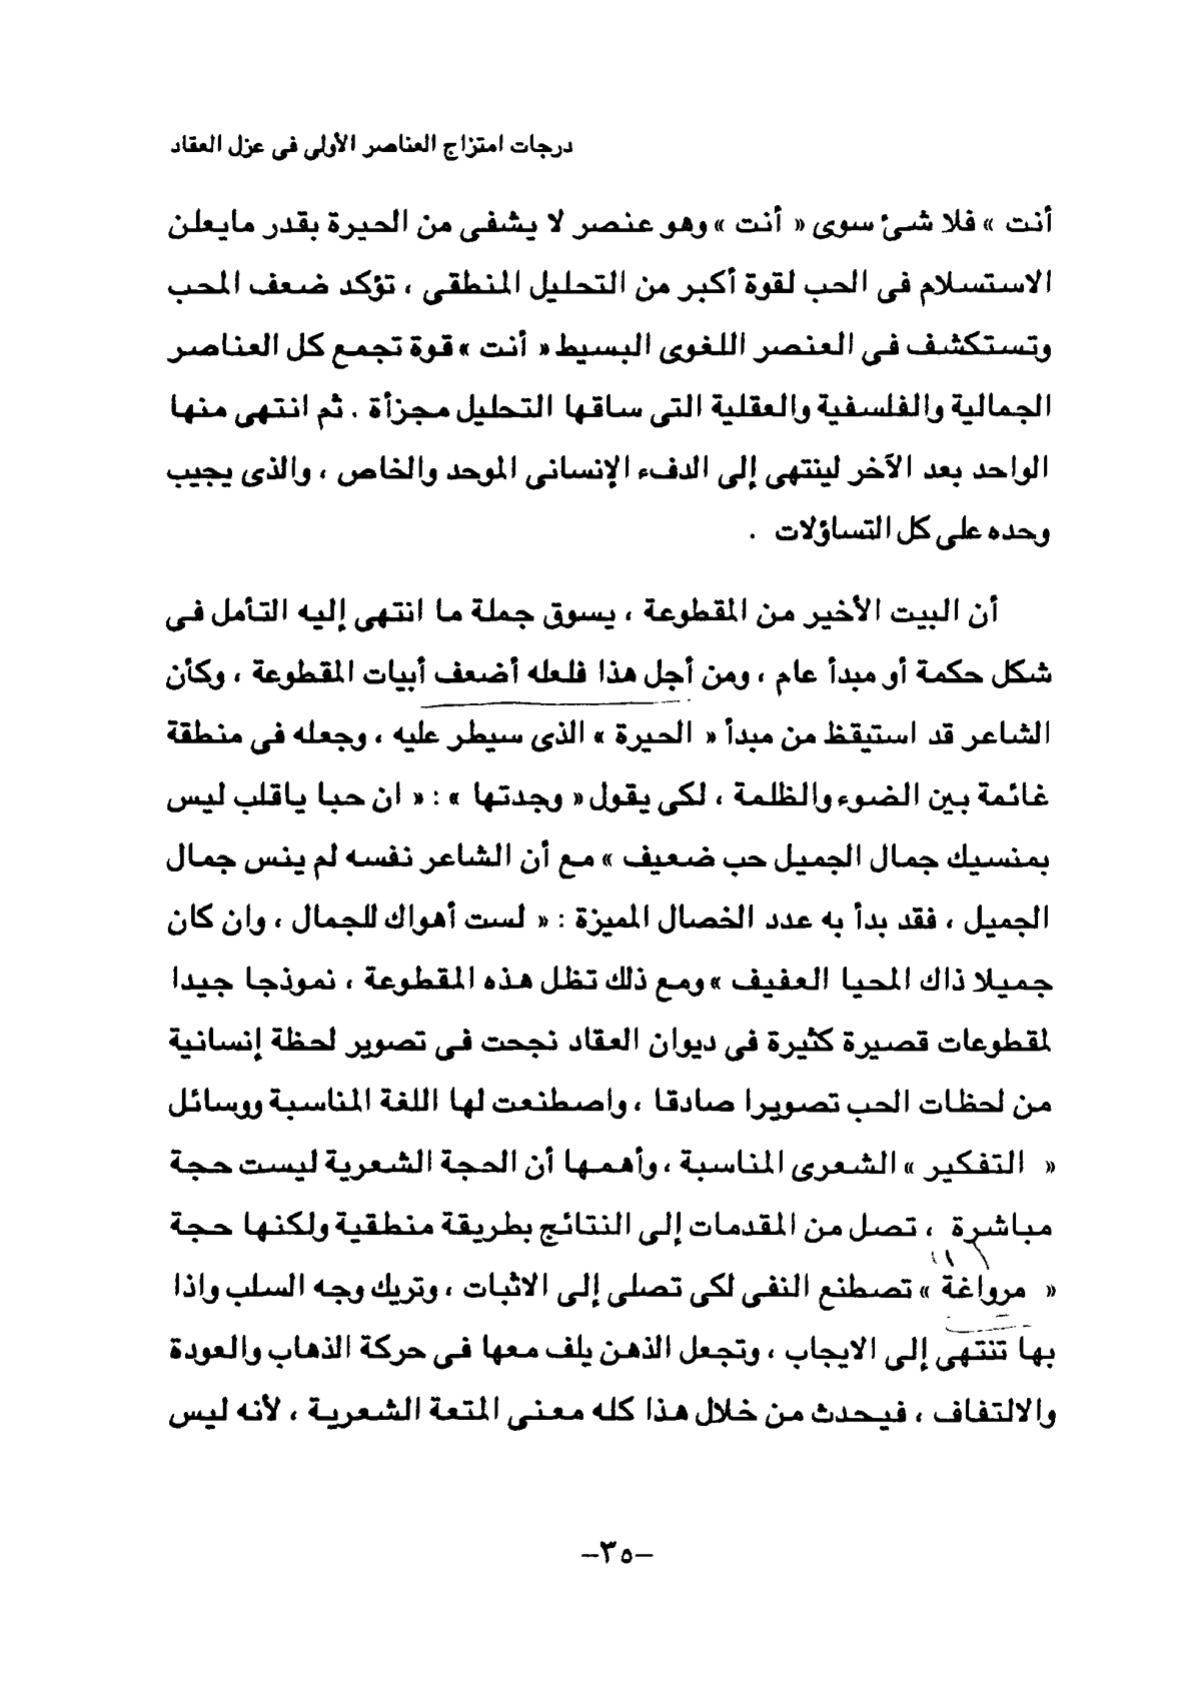 درجات امتزاج العناصر الأولى فى عزل العقاد
أنت » فلا شئ سوى « أنت » وهو عنصر لا يشفى من الحيرة بقدر مايعلن
الاستسلام فى الحب لقوة أكبر من التحليل المنطقى ، تؤكد ضعف المحب
وتستكشف فى العنصر اللغوى البسيط « أنت » قوة تجمع كل العناصر
الجمالية والفلسفية والعقلية التى ساقها التحليل مجزأة . ثم انتهى منها
الواحد بعد الآخر لينتهى إلى الدفء الإنسانى الموحد والخاص ، والذى يجيب
وحده على كل التساؤلات .
أن البيت الأخير من المقطوعة ، يسوق جملة ما انتهى إليه التأمل فى
شكل حكمة أو مبدأ عام ، ومن أجل هذا فلعله أضعف أبيات المقطوعة ، وكأن
الشاعر قد استيقظ من مبدأ « الحيرة » الذى سيطر عليه ، وجعله فى منطقة
غائمة بين الضوء والظلمة ، لكى يقول « وجدتها » : « ان حبا ياقلب ليس
بمنسيك جمال الجميل حب ضعيف » مع أن الشاعر نفسه لم ينس جمال
الجميل ، فقد بدأ به عدد الخصال المميزة : « لست أهواك للجمال ، وان كان
جميلا ذاك المحيا العفيف » ومع ذلك تظل هذه المقطوعة ، نموذجا جيدا
لمقطوعات قصيرة كثيرة فى ديوان العقاد نجحت فى تصوير لحظة إنسانية
من لحظات الحب تصويرا صادقا ، واصطنعت لها اللغة المناسبة ووسائل
« التفكير » الشعرى المناسبة ، وأهمها أن الحجة الشعرية ليست حجة
مباشرة ، تصل من المقدمات إلى النتائج بطريقة منطقية ولكنها حجة
« مرواغة » تصطنع النفى لكى تصلى إلى الاثبات ، وتريك وجه السلب واذا
بها تنتهى إلى الايجاب ، وتجعل الذهن يلف معها فى حركة الذهاب والعودة
والالتفاف ، فيحدث من خلال هذا كله معنى المتعة الشعرية ، لأنه ليس
–٣٥–